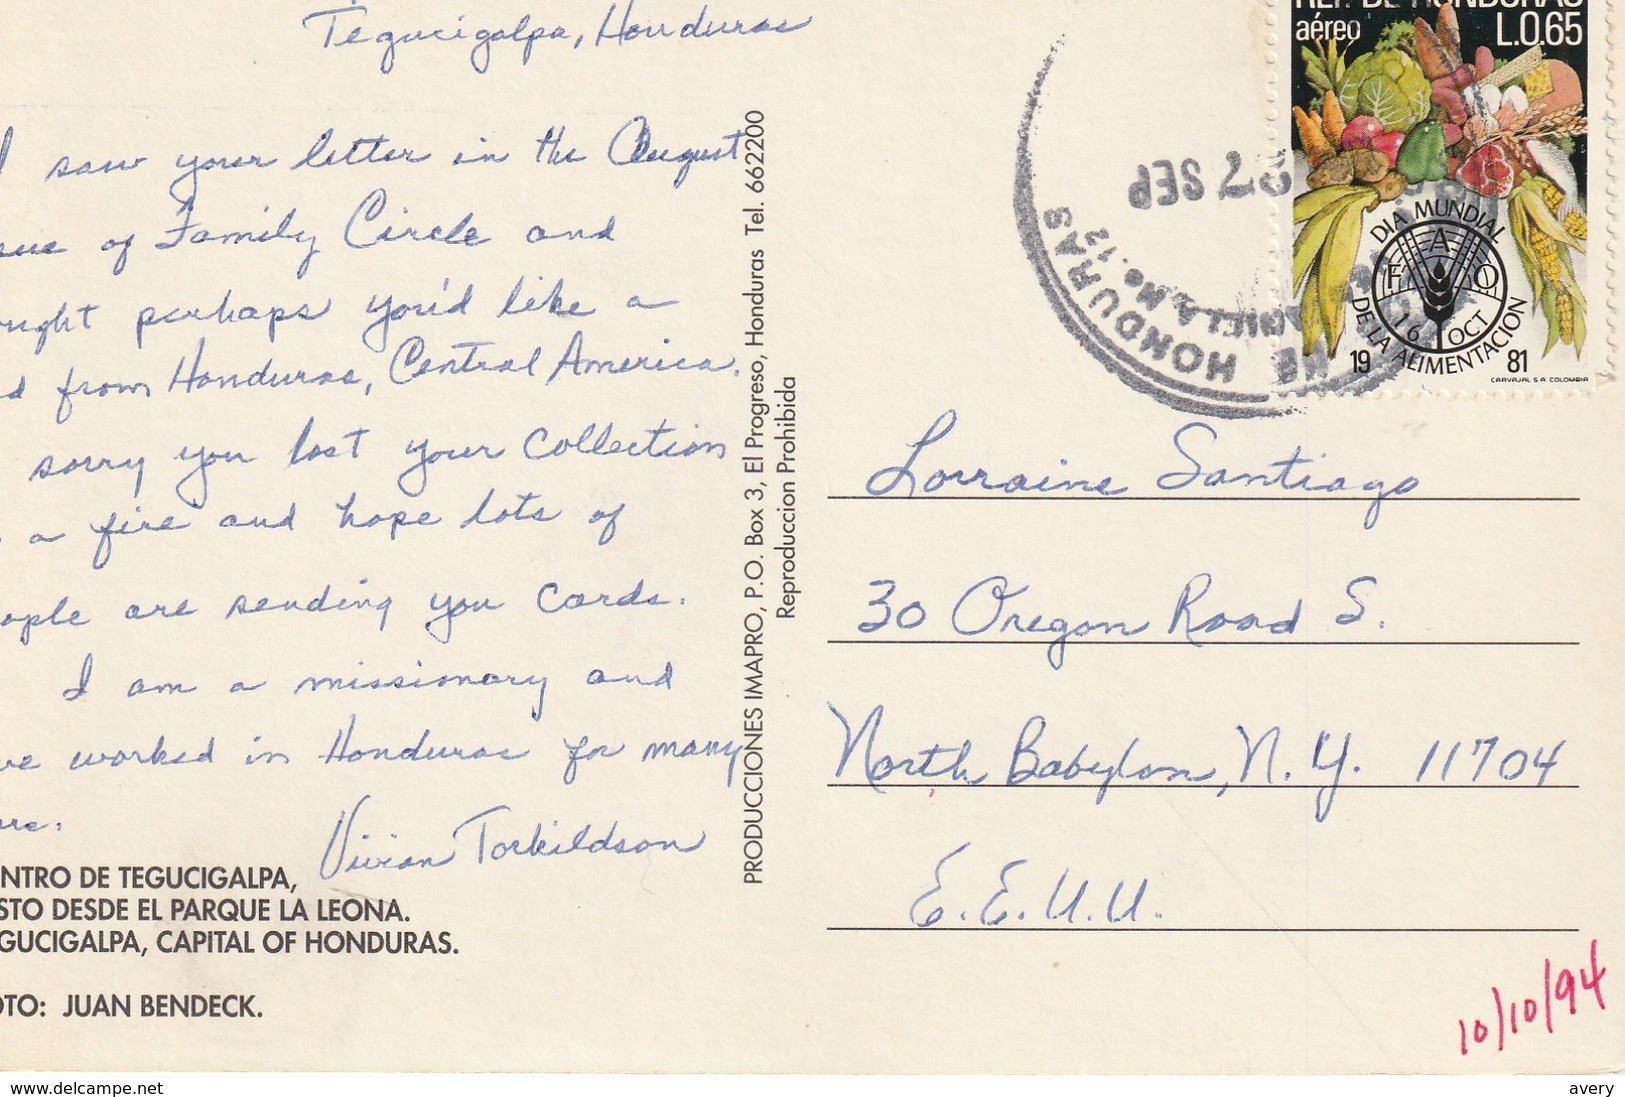 Tegucigalpa, Honduras
I saw your letter in the August
sue of Family Circle and
ought perhaps you'd like a
d from Honduras, Central America.
sorry you lost your collection
a fire and hope lots of
ople are sending you cards.
I am a missionary and
ve worked in Honduras for many
Vivian Torkildson
NTRO DE TEGUCIGALPA,
STO DESDE EL PARQUE LA LEONA.
GUCIGALPA, CAPITAL OF HONDURAS.
OTO: JUAN BENDECK.
PRODUCCIONES IMAPRO, P.O. Box 3, El Progreso, Honduras Tel. 662200
Reproduccion Prohibida
REP. DE HONDURAS
aéreo L.0.65
DIA MUNDIAL
F A O
16 OCT
DE LA ALIMENTACION
19 81
CARVAJAL S.A. COLOMBIA
27 SEP
HONDURAS
No. 12
Lorraine Santiago
30 Oregon Road S.
North Babylon, N.Y. 11704
E.E.U.U.
10/10/94
www.delcampe.net
avery